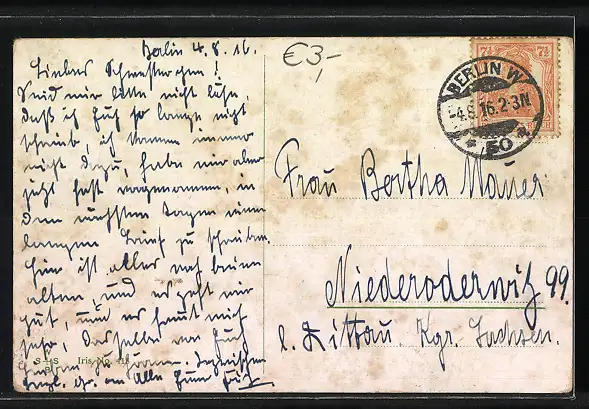 Berlin 4.8.16.
Liebes Schwesterchen!
Seid mir bitte nicht böse,
daß ich Euch so lange nicht
schrieb, ich komme immer
nicht dazu, habe mir aber
jetzt fest vorgenommen, in
den nächsten Tagen einen
langen Brief zu schreiben.
Hier ist alles noch beim
alten, und es geht mir
gut, und es freut mich
sehr, dasselbe von Euch
zu hören. Inzwischen
herzl. Gr. an Alle Eure
S+S
Iris No.
€3,-
7½ 7½
BERLIN W
-4.8.16.2-3N
* 50 a.
Frau Bertha Mauer
Niederoderwitz 99.
b. Zittau. Kgr. Sachsen.